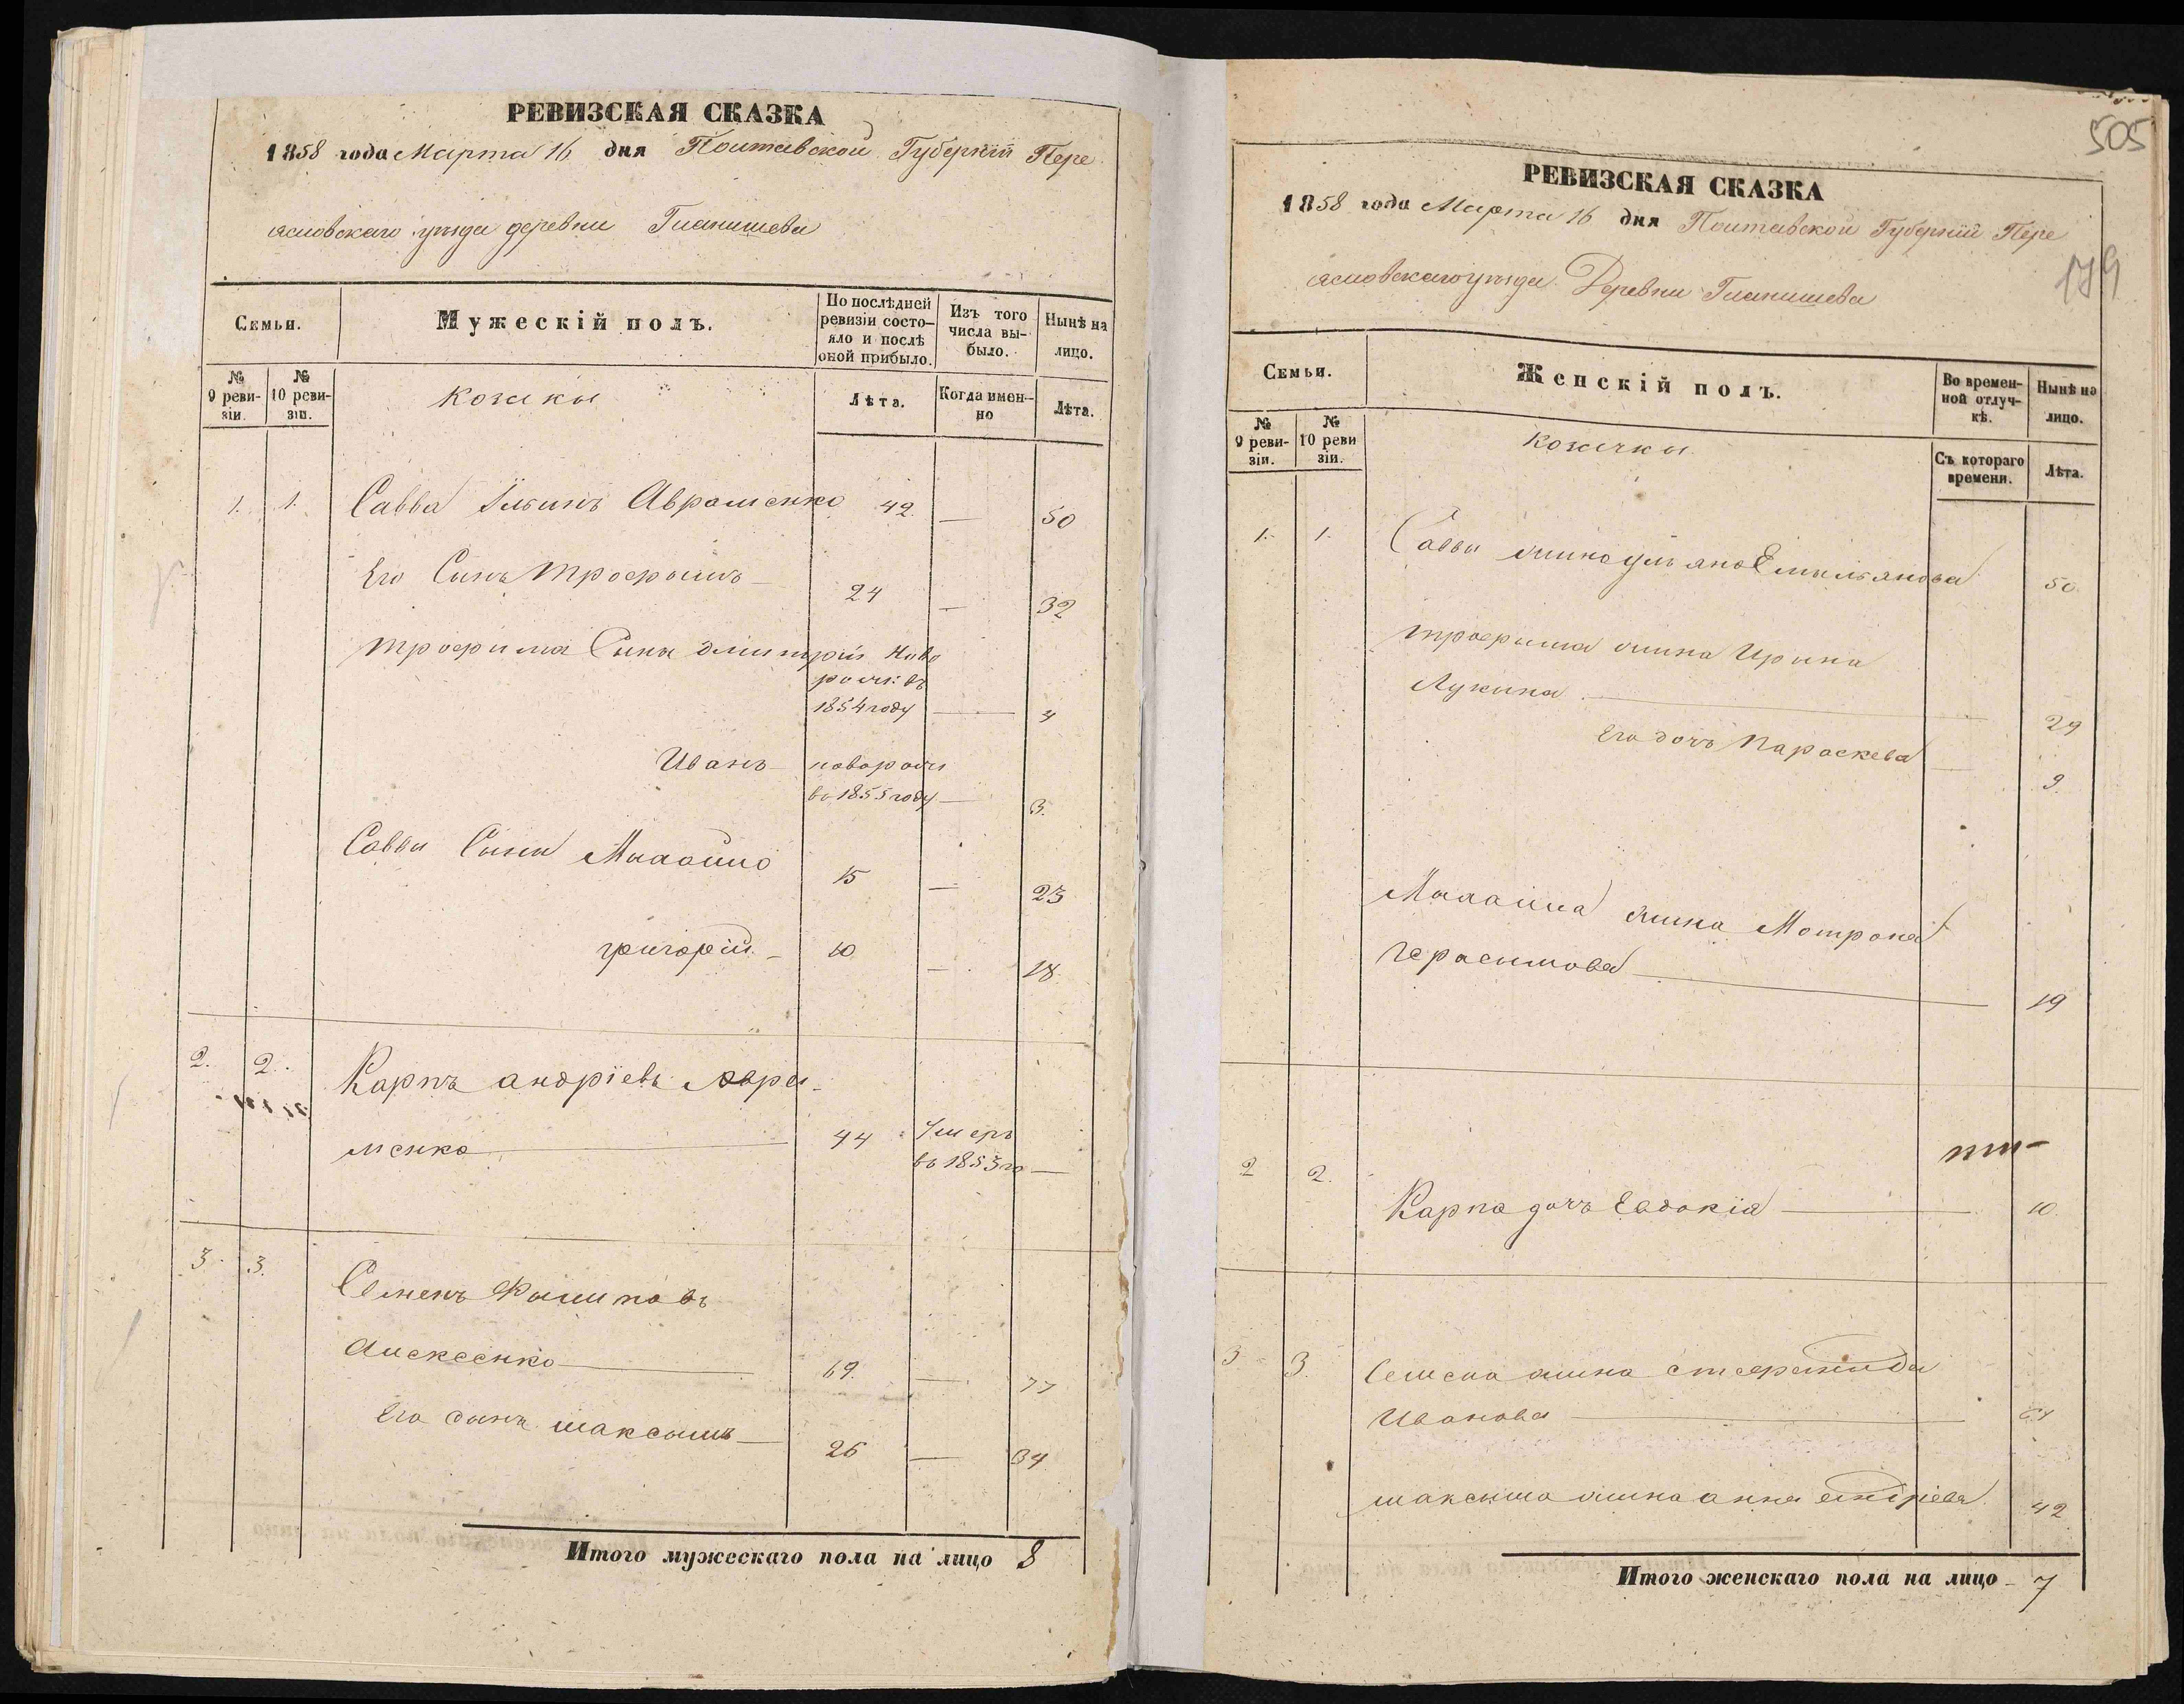 РЕВИЗСКАЯ СКАЗКА
1858 года Марта 16 дня Полтавской Губерніи Пере
яславскаго уезда деревни Гланишева
Семьи.
Мужескій полъ.
По послѣдней ревизіи состо-
яло и послѣ оной прибыло.
Изъ того числа вы-
было.
Нынѣ на лицо.
№ 9 реви-
зіи.
№ 10 реви-
зіи.
козаки
Лѣта.
Когда имен-
но
Лѣта.
1. 1. Савва Ильинъ Авраменко 42. — 50
Его Сынъ Трофимъ — 24 — 32
Трофима Сыны Дмитрій Ново
рожд: въ
1854 году — 4
Иванъ — новорожд
въ 1855 году — 3.
Саввы Сыны Михайло 15 — 23
григорій. — 10 — 18.
2. 2. Карпъ андріевъ Авра-
менко 44 Умеръ
въ 1853 го —
3 3. Семенъ Филиповъ
Алексеенко 69. — 77
Его сынъ максимъ — 26 — 34
Итого мужескаго пола на лицо 8
505
179
РЕВИЗСКАЯ СКАЗКА
1858 года Марта 16 дня Полтавской Губерніи Пере
яславскаго уезда Деревни Гланишева
Семьи.
Женскій полъ.
Во времен-
ной отлуч-
кѣ.
Нынѣ на лицо.
№ 9 реви-
зіи.
№ 10 реви
зіи.
козачки
Съ котораго времени.
Лѣта.
1. 1. Саввы жина улянаЕмильянова 50.
Трофима жина Ирина
Лукина. 29
Его дочь Параскева — 9.
Михайла жина Мотрона
Герасимова 19
2 2. Карпа дочь Евдокія 10.
3 3. Семена жина
Иванова
максима жина анна андріева 42
Итого женскаго пола на лицо - 7